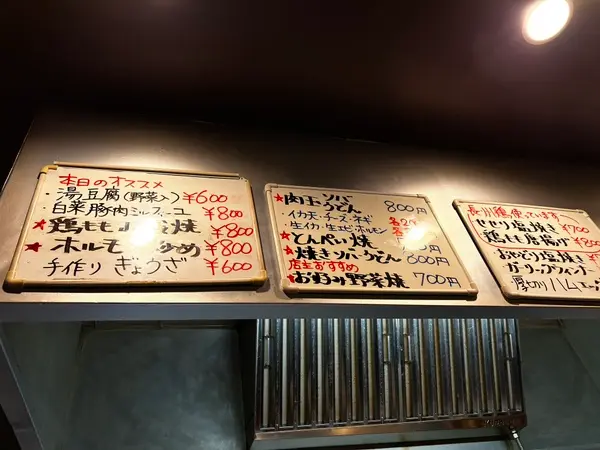 本日のオススメ
・湯豆腐(野菜入) ¥600
・白菜豚肉ミルフィーユ ¥800
★鶏もも 焼 ¥800
★ホルモン炒め ¥800
手作り ぎょうざ ¥600
★肉玉 ソバ うどん 800円
・イカ天・チーズ・ネギ
生イカ・生エビ・ホルモン
★とんぺい焼
★焼きソバ・うどん 600円
店主おすすめ
★お好み野菜焼 700円
長州鶏使っています
せせり塩焼き ¥700
鶏もも唐揚げ ¥800
おやどり塩焼き
ガーリックウィンナー
厚切りハム